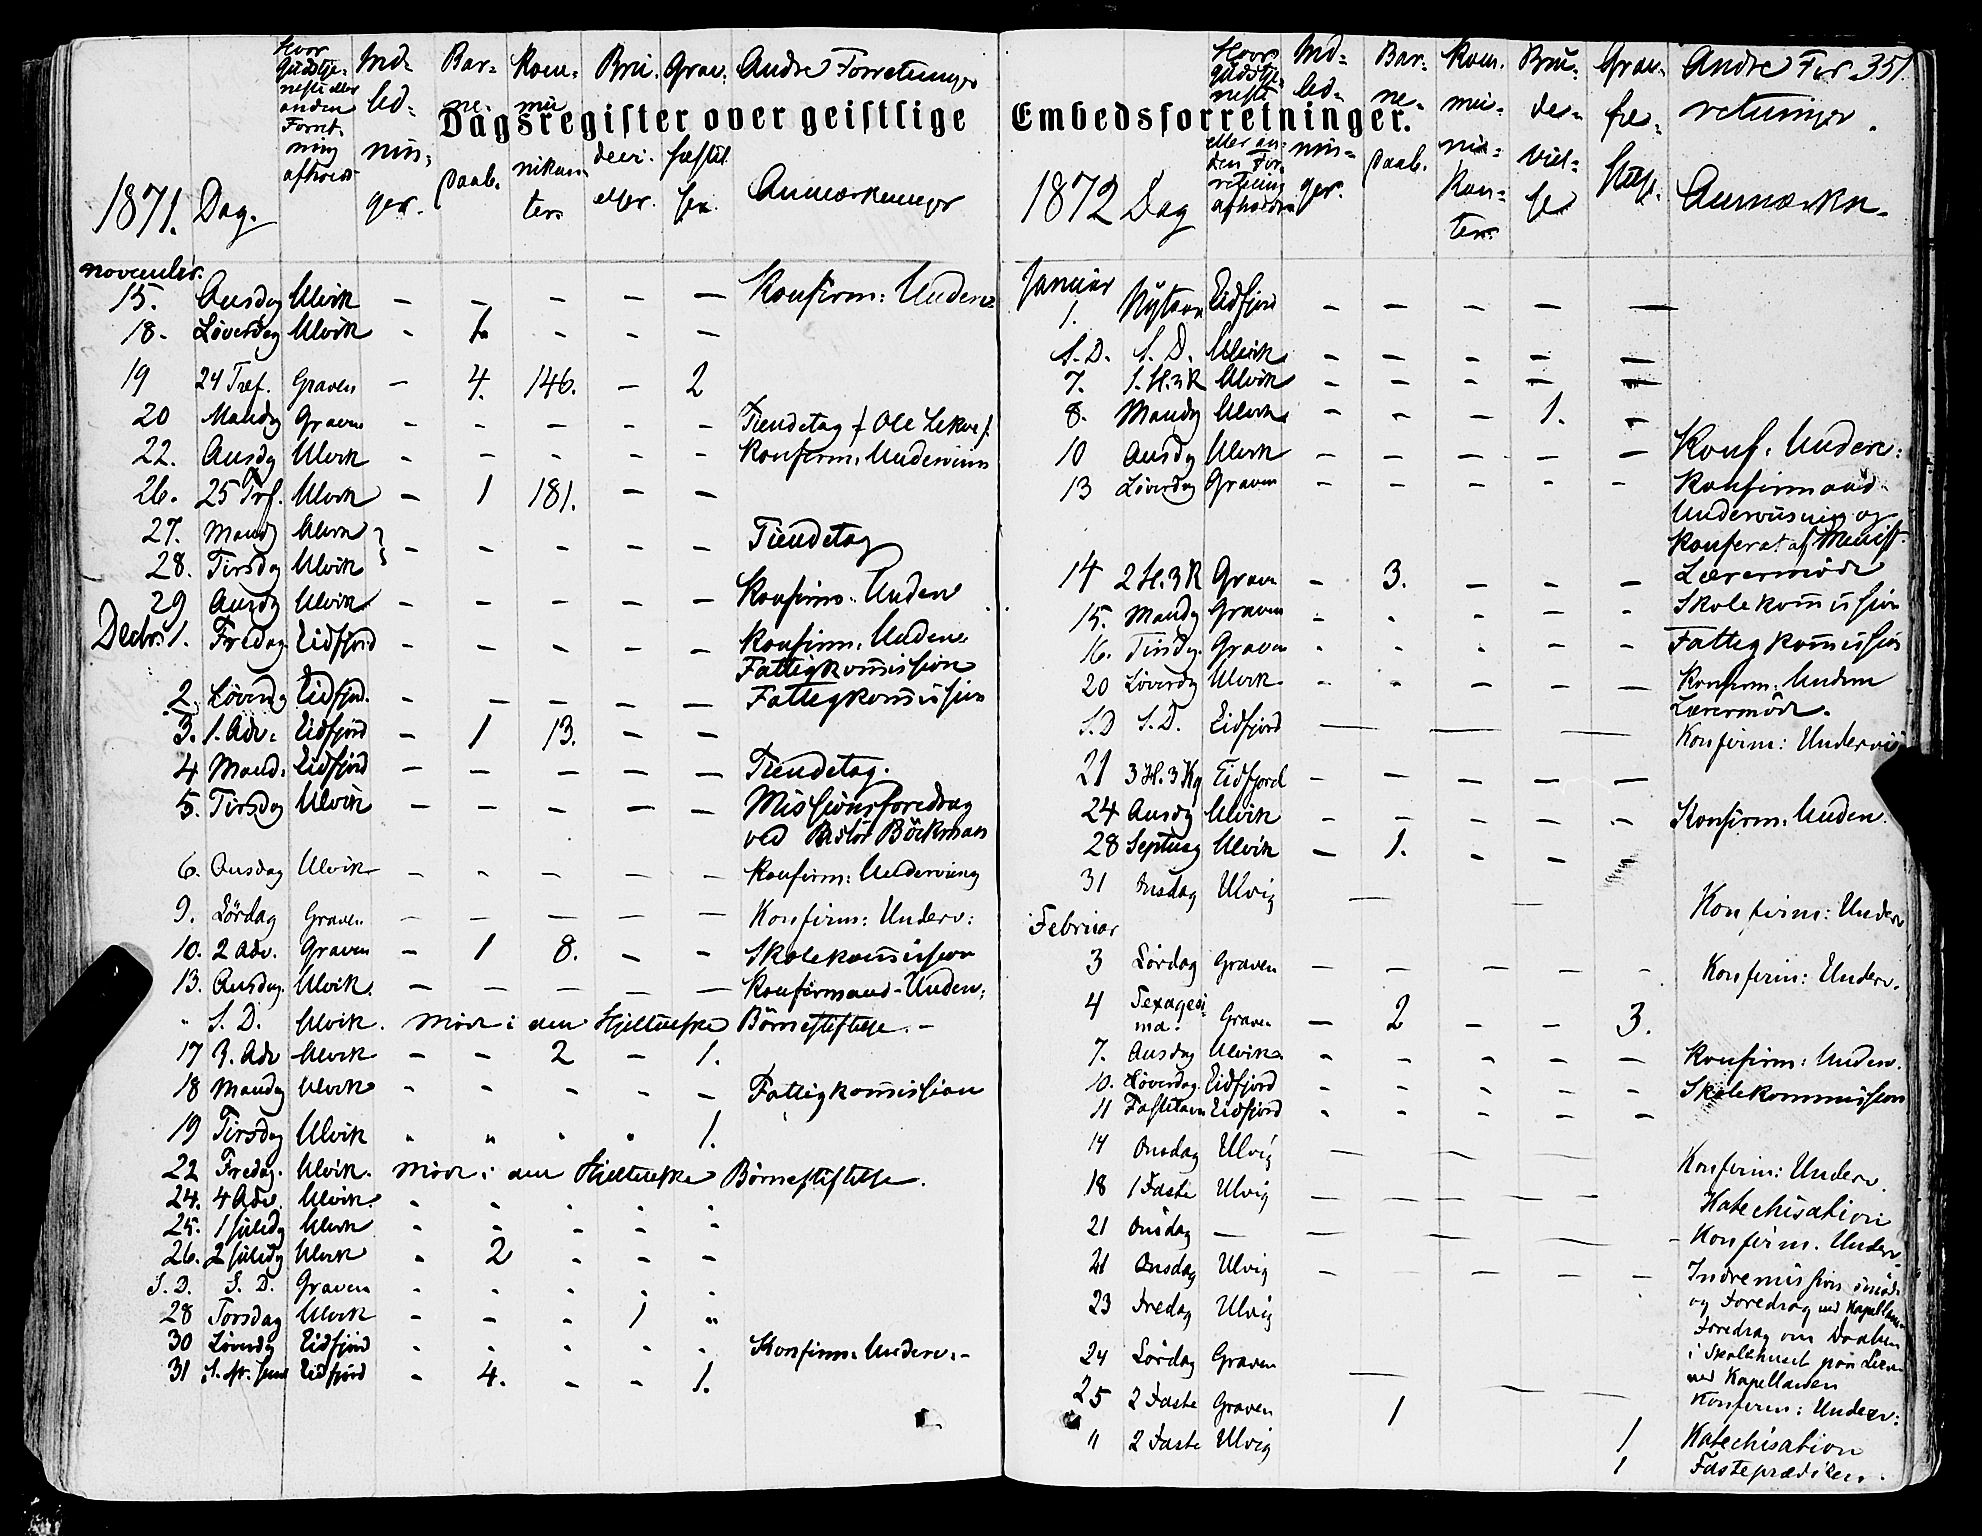 Dagsregister over geistlige Embedsforretninger.
351.
1871. Dag. Hvor Gudstjeneste eller anden Forretning afholdes Indledninger. Barnedaab. Kommunikanter. Brudevielser. Gravfæstelser. Andre Forretninger Anmærkninger
november.
15. Onsdag Ulvik – – – – – Konfirm: Underv
18. Löverdag Ulvik - 1. - - -
19 24 Tref. Graven – 4. 146. – 2
20 Mandg Graven - - - - - Tiendetag f Ole Lekve f.
22. Onsdg Ulvik - - - - - Konfirm. Undervisn
26. 25 Trf. Ulvik – 1 181. – –
27. Mandg Ulvik
28. Tirsdag Ulvik - - - - - Tiendetag
29 Onsdg Ulvik - - - - - Konfirm. Underv
Decbr. 1. Fredag. Eidfjord - - - - - Konfirm. Underv.
Fattigkom̄ission
2. Löverdg Eidfjord. - - - - - Fattigkom̄ission
3. 1. Adv. Eidfjord – 1 13. – –
4 Mand. Eidfjord – – – – – Tiendetag.
5. Tirsdag Ulvik – – – – – Missionsforedrag
ved Pastor Böckman
6. Onsdag Ulvik - - - - - Konfirm: Underviisng
9. Lördag Graven – – – – – Konfirm: Underv:
10. 2 Adv. Graven – 1 8. - - Skolekom̄ission
13. Onsdag. Ulvik. – – – – – Konfirmand-Underv:
" S. D. Ulvik. Möde i den Hjeltneske Börnestiftelse. –
17 3. Adv Ulvik – – 2 – 1.
18 Mandag Ulvik - - - - – Fattigkom̄ission
19 Tirsdag Ulvik " " " " 1.
22 Fredag. Ulvik. Möde i den Hjeltneske Börnestiftelse.
24. 4 Adv. Ulvik. - - - - -
25. 1 Juledg Ulvik - - - - -
26. 2 Juledg Ulvik - 2 - - -
S. D. S. D. Graven - - - - -
28 Torsdag Ulvik - - - 1 "
30 Löverdg Eidfjord - - - - - Konfirm. Underv. –
31 S. Eidfjord - 4. - - 1.
1872 Dag Hvor Gudstjeneste eller anden Forretning afholdes Indledninger. Barnedaab. Kommunikanter. Brudevielse Gravfæstelse. Andre Forretninger. Anmærkn.
Januar
1. Nytaar Eidfjord – – – – –
S. D. S. D. Ulvik – – – – –
7. 1. H.3K Ulvik – – – – –
8. Mandg Ulvik - - - 1. -
10 Onsdg Ulvik – – – – – Konf. Underv:
13 Löverdag Graven - - - - - Konfirmand
Undervisning og
Konferat af Menist.
14 2 H.3K Graven – 3. – – – Lærermöde
15. Mandg Graven - - - - - Skolekom̄ission
16. Tirsdg. Graven - - - - - Fattigkom̄ission
20 Löverdg Ulvik - - - - – Konfirm: Underv
Lærermöde.
S.D S. D. Eidfjord — — — Konfirm: Undervis
21 3 H.3Kg Eidfjord – – – – –
24 Onsdg Ulvik - - - - - Konfirm. Underv.
28 Septuag Ulvik – 1. - - -
31 Onsdag Ulvig — — Konfirm: Underv
Februar
3 Lördag Graven – – – – - Konfirm: Underv.
4 Sexagesima. Graven – 2 – – 3.
7. Onsdag Ulvik - - - - – Konfirm: Underv.
10. Löverdag. Eidfjord - - - - - Skolekommission
11 Fastelavn Eidfjord - - - - –
14 Onsdag Ulvig – – – – Konfirm: Underv.
18 1 Faste Ulvig – – – – – Katechisation
21 Onsdag – – – – – – Konfirm. Underv.
21 Onsdag Ulvig – – – – – Indremissionsmöde
23 Fredag Ulvig og Foredrag ved Kapellanen
Foredrag om Daaben
24 Lördag Graven i Skolehuset paa
ved Kapellanen
25 2 Faste Graven 1 Konfirm: Underv:
" 2 Faste Ulvig 1 Katechisation
1 Fasteprædiken.